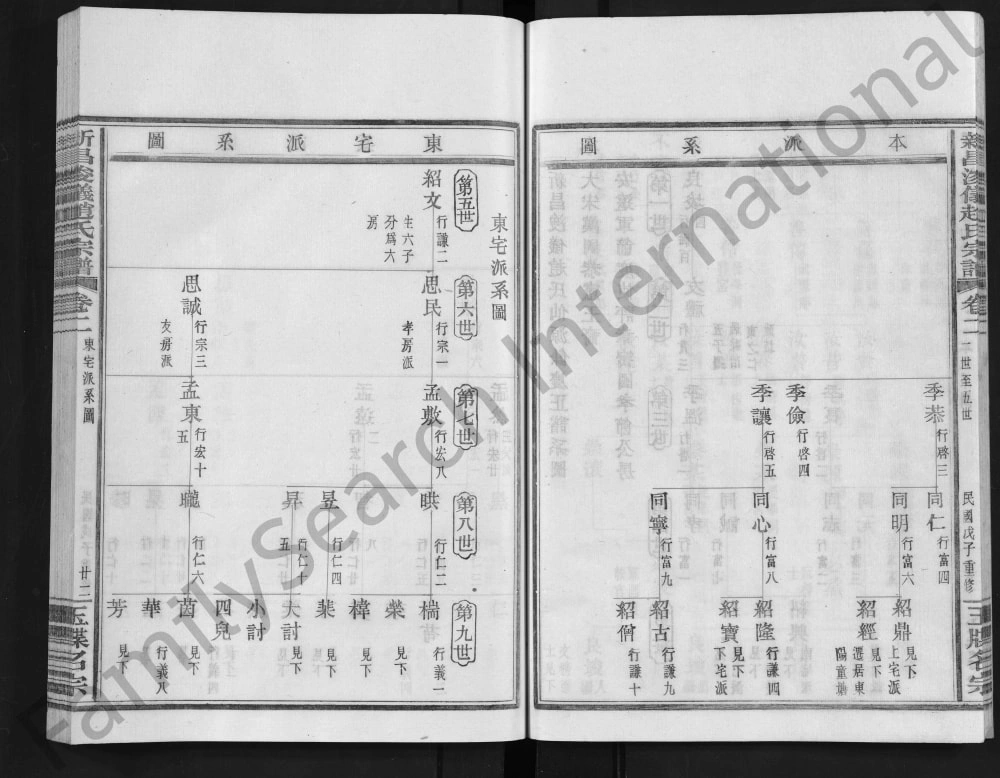 本派系圖
季恭 行啓三
季儉 行啓四
季讓 行啓五
同仁 行富四
同明 行富六
同心 行富八
同寧 行富九
紹鼎 見下 上宅派
紹經 見下 遷居東陽童塘
紹隆 行謙四
紹寶 見下 下宅派
紹古 行謙九
紹僧 行謙十
二世至五世
民國戊子重修
卷二
東宅派系圖
東宅派系圖
第五世
紹文 行謙二 生六子分爲六房
第六世
思民 行宗一 孝房派
思誠 行宗三 友房派
第七世
孟敷 行宏八
孟東 行宏十五
第八世
晎 行仁二
昱 行仁四
昇 行仁十五
曨 行仁六
第九世
行義一
榮 見下
樟 見下
葉 見下
大討 見下
小討
四兒
茵 見下
華 行義八
芳 見下
新昌浚儀趙氏宗譜
卷二
東宅派系圖
廿二
玉牒名宗
FamilySearch International